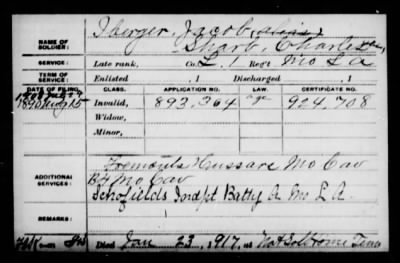 NAME OF SOLDIER: Iberger, Jacob, (alias)
Sharb, Charles
SERVICE: Late rank, Co. L, 1 Reg't Mo L A
TERM OF SERVICE: Enlisted , 1 Discharged , 1
DATE OF FILING. CLASS. APPLICATION NO. LAW. CERTIFICATE NO.
1890 Aug 15 Invalid, 893,364 924,708
Widow,
Minor,
Fremonts Hussars Mo Cav
ADDITIONAL SERVICES: B 4 Mo Cav
Schofields Indpt Batty A Mo L A.
REMARKS:
Died Jan 23, 1917, at Nat Sol Home Tenn